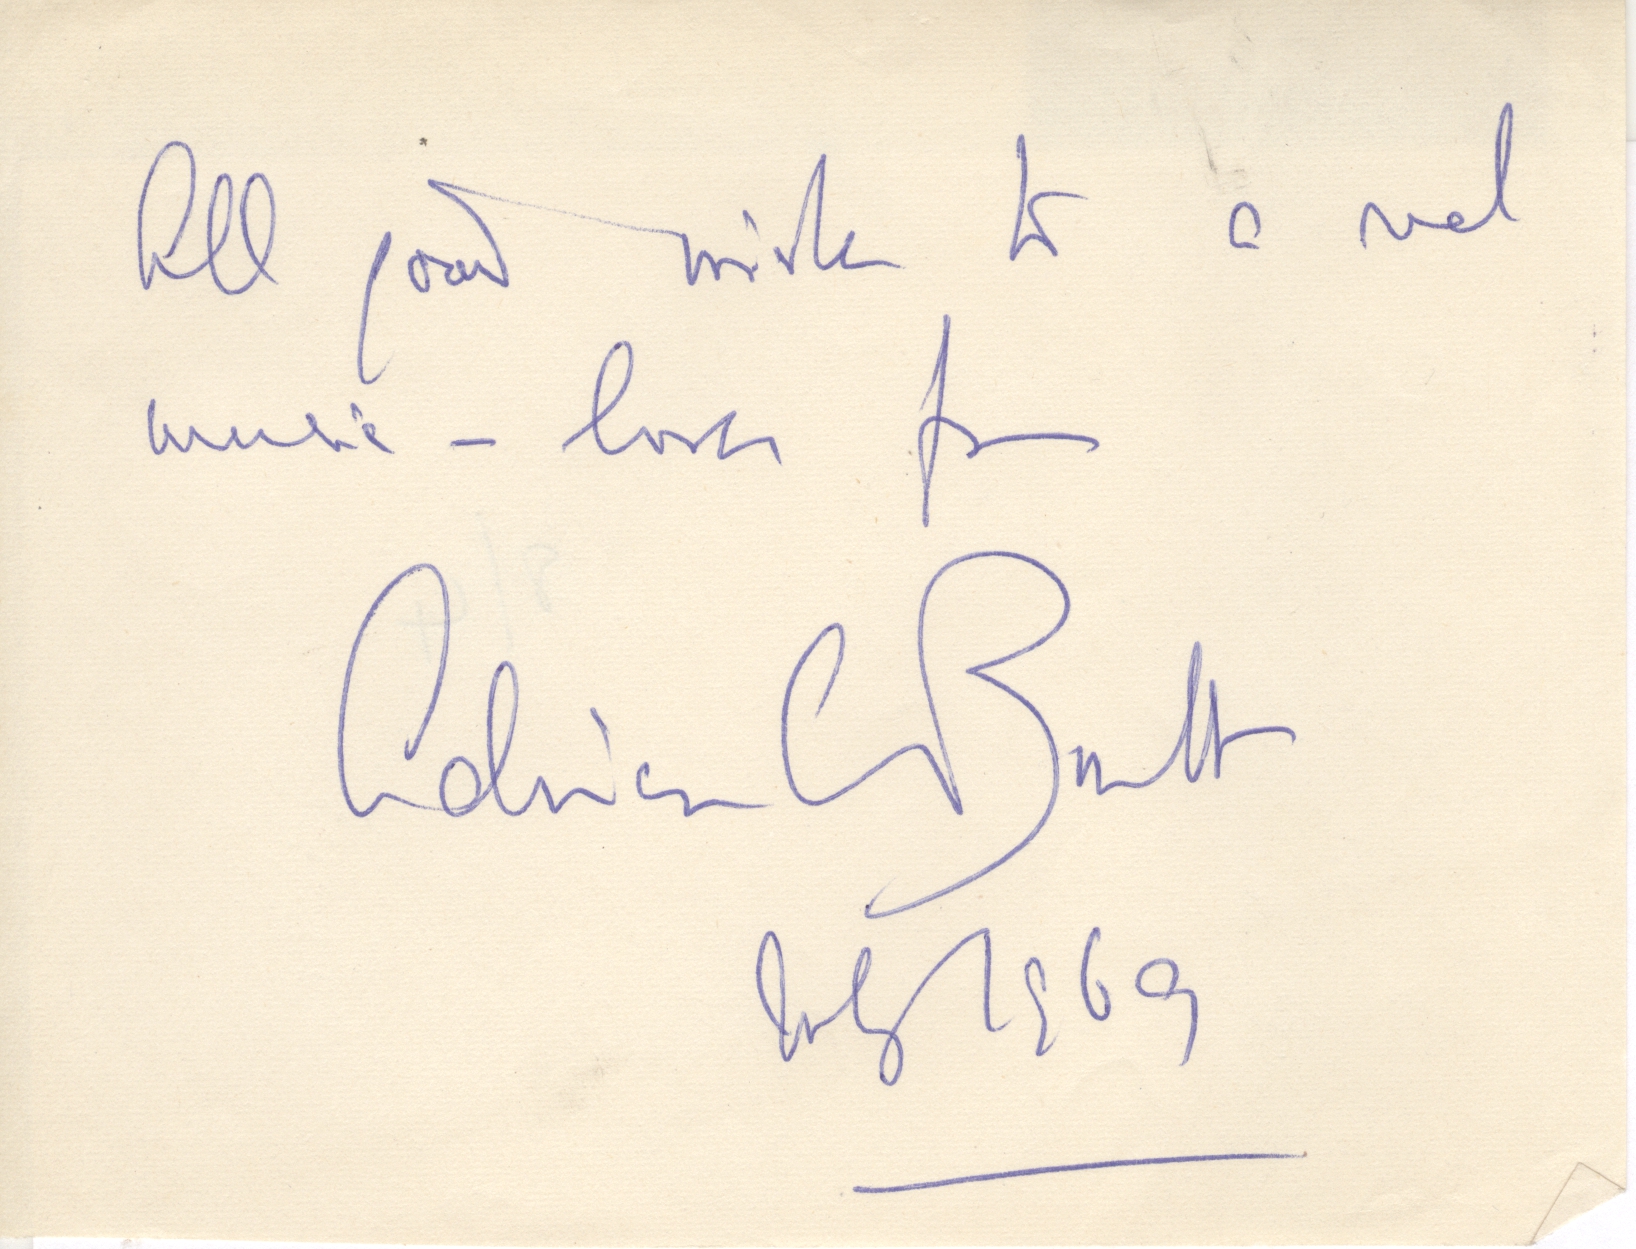 All good wishes to a real
music-lover from
Adrian C Boult
July 1969